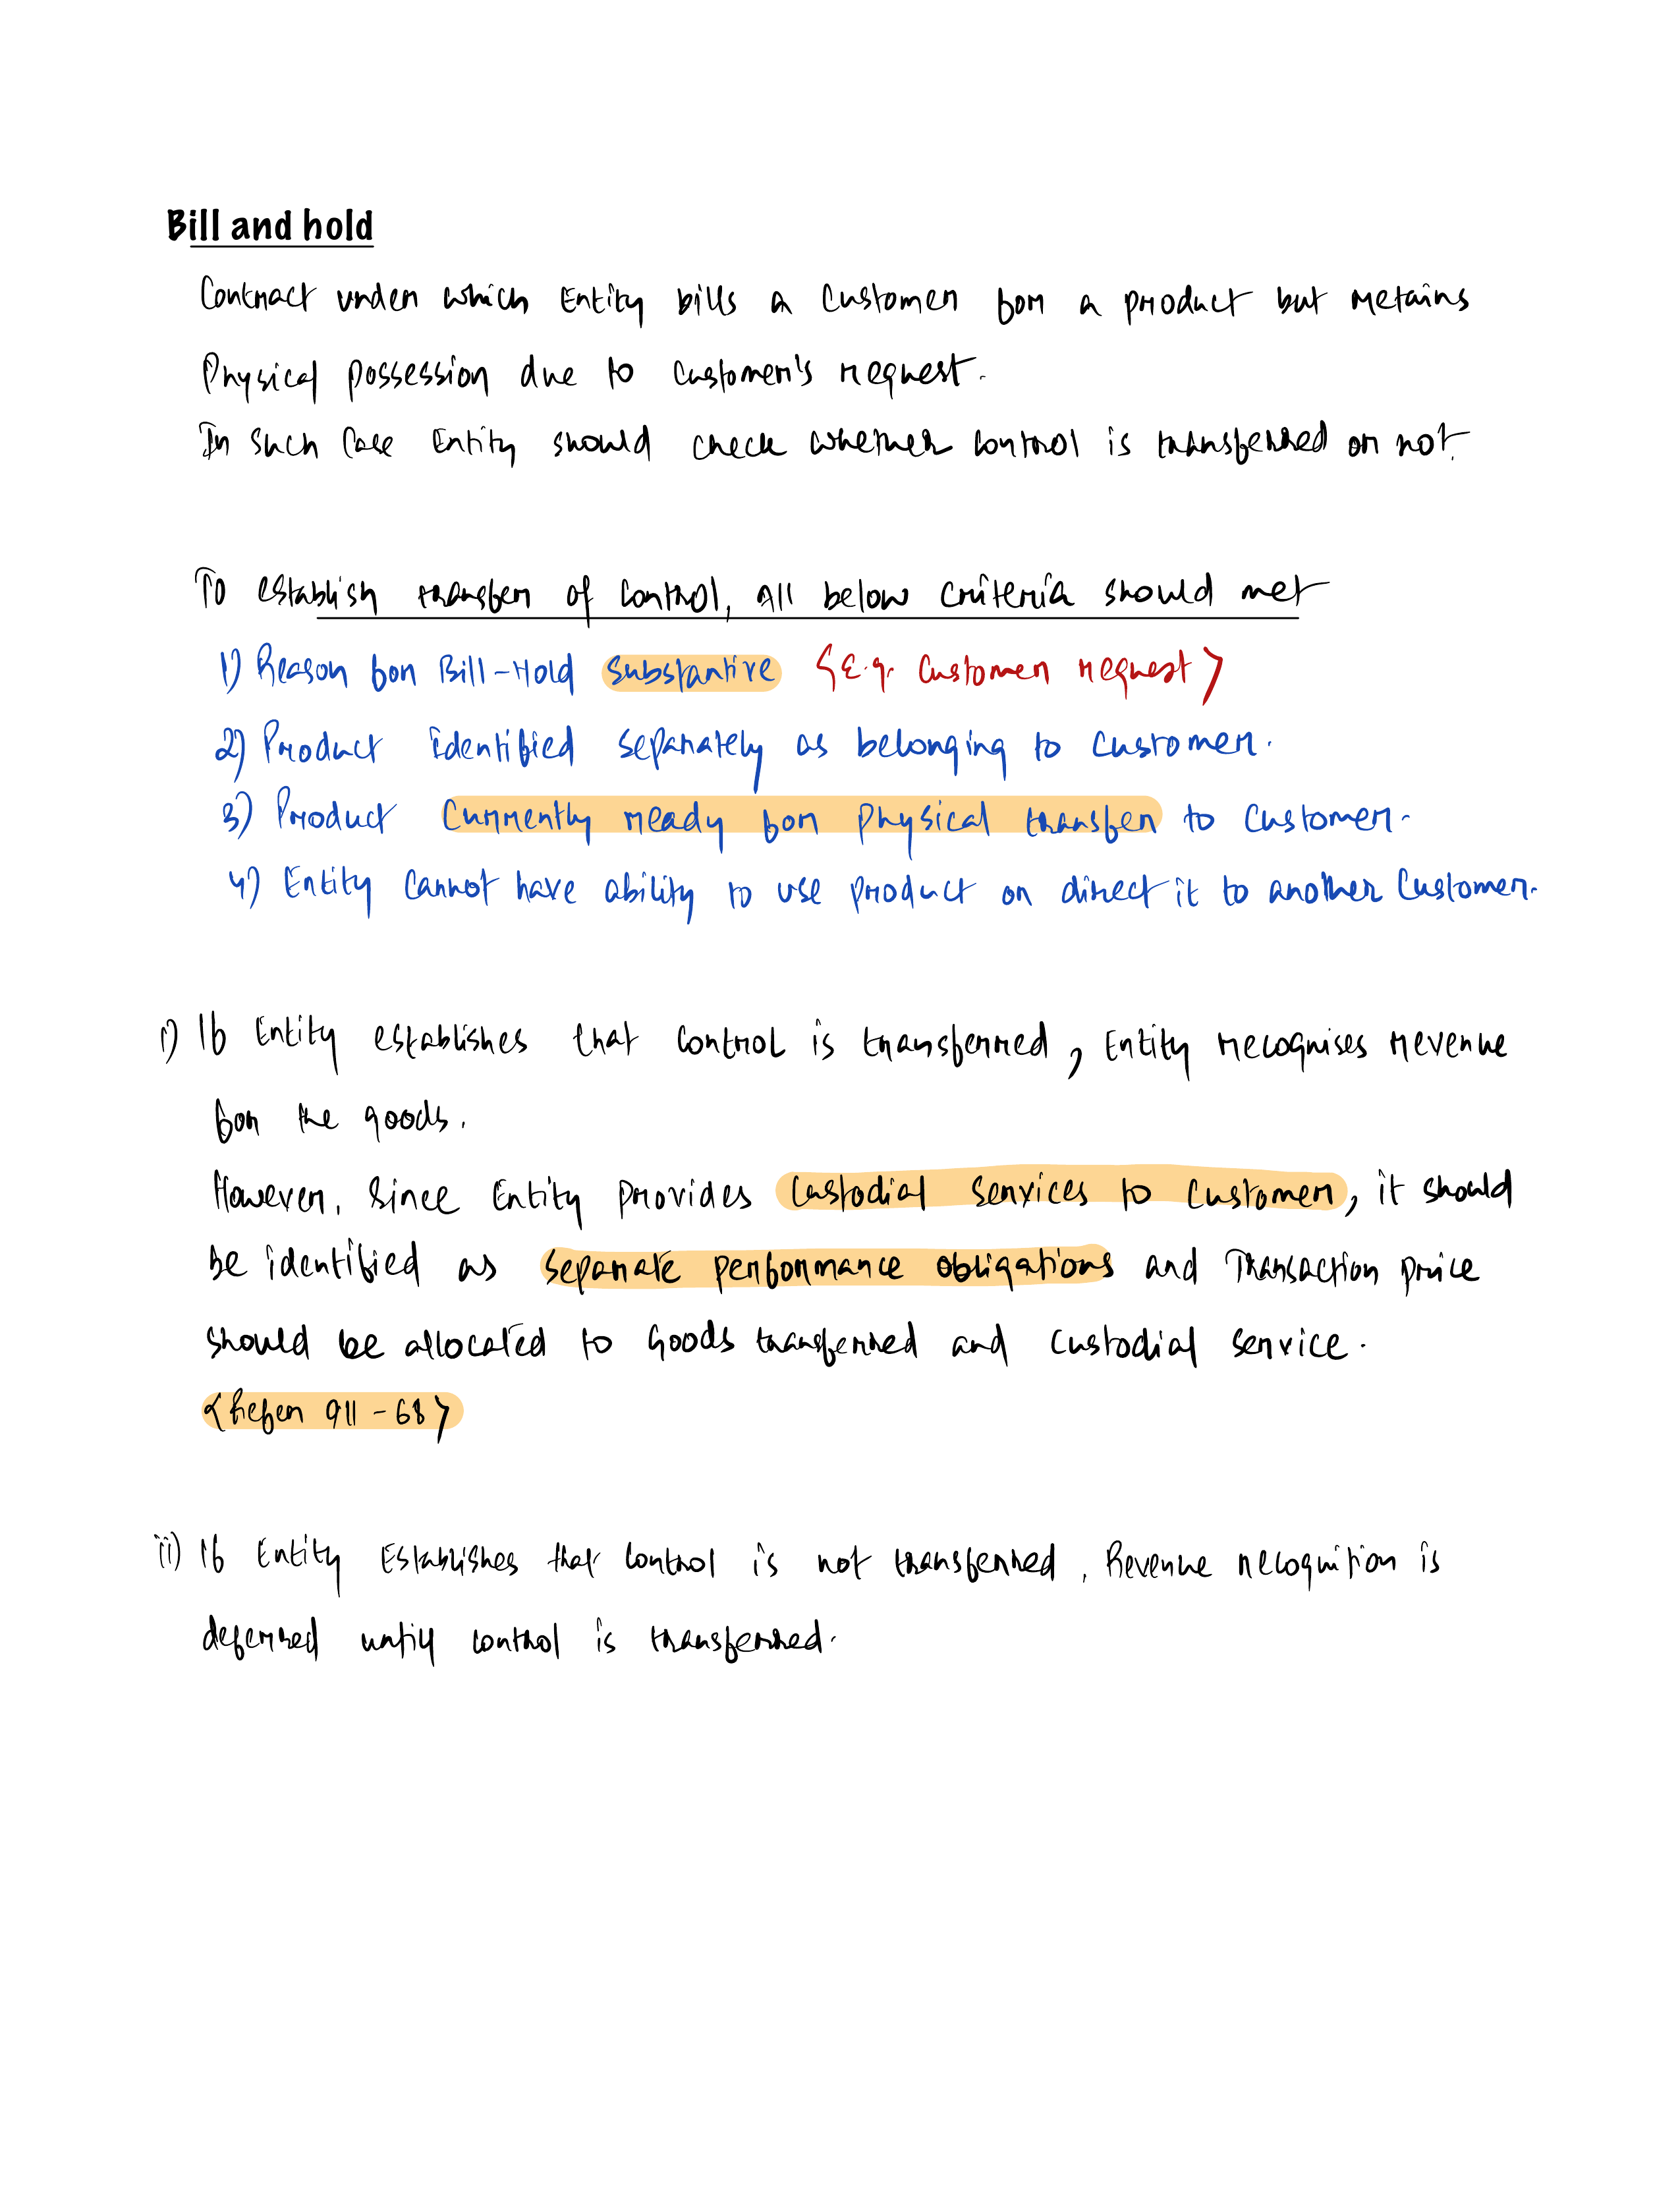 Bill and hold
Contract under which Entity bills a Customer for a product but retains
Physical possession due to Customer's request.
In Such Case Entity should check whether control is transferred or not.
To establish transfer of Control, All below criteria should met
1) Reason for Bill-Hold Substantive <E.g. Customer request>
2) Product identified separately as belonging to customer.
3) Product Currently ready for physical transfer to customer.
4) Entity cannot have ability to use product or direct it to another Customer.
i) If Entity establishes that control is transferred, Entity recognises revenue
for the goods.
However, Since Entity provides Custodial Services to Customer, it should
be identified as separate performance obligations and Transaction price
should be allocated to Goods transferred and custodial service.
<Refer 911-68>
ii) If Entity Establishes that control is not transferred, Revenue recognition is
deferred until control is transferred.